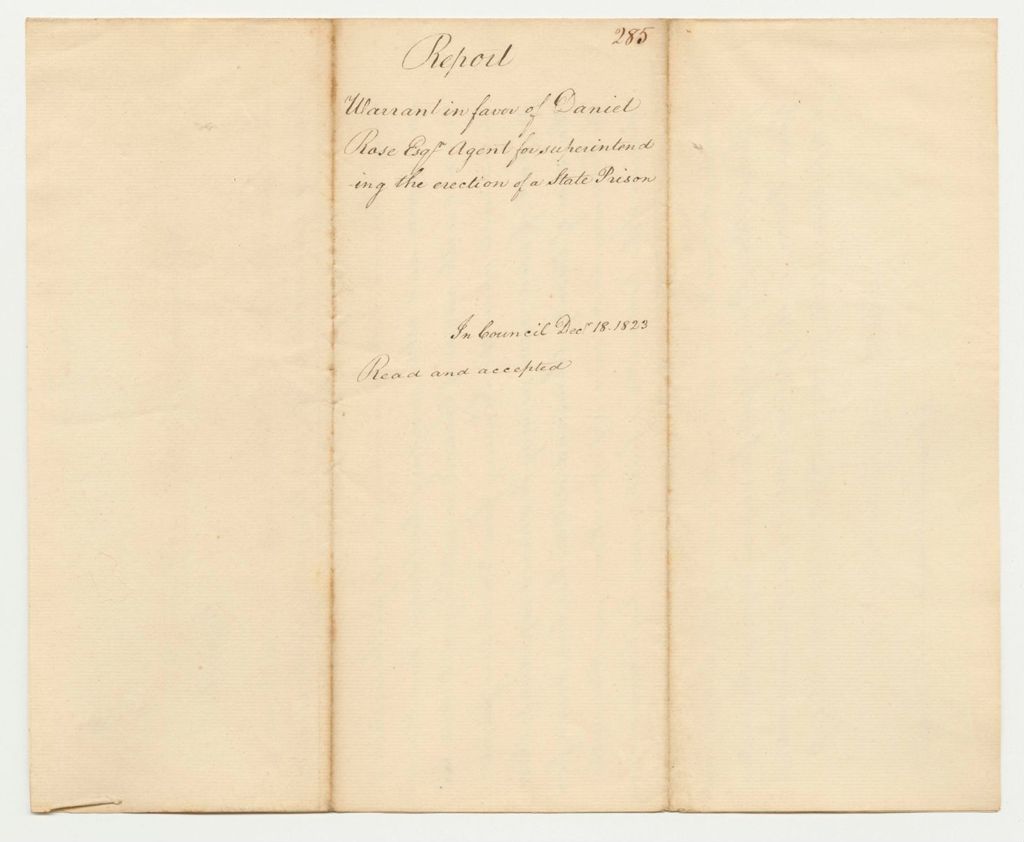 285
Report
Warrant in favor of Daniel
Rose Esqr Agent for superintend
-ing the erection of a State Prison
In Council Decr 18. 1823
Read and accepted